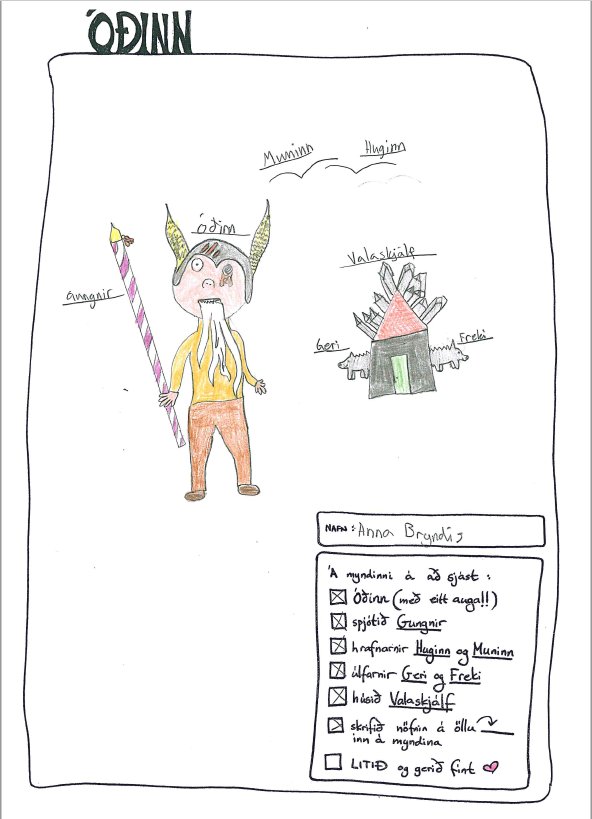 ÓÐINN
Muninn
Huginn
Óðinn
Valaskjálf
Gungnir
Geri
Freki
NAFN: Anna Bryndís
Á myndinni á að sjást:
Óðinn (með eitt auga!!)
spjótið Gungnir
hrafnarnir Huginn og Muninn
úlfarnir Geri og Freki
húsið Valaskjálf
skrifið nöfnin á öllu
inn á myndina
LITIÐ og gerið fínt